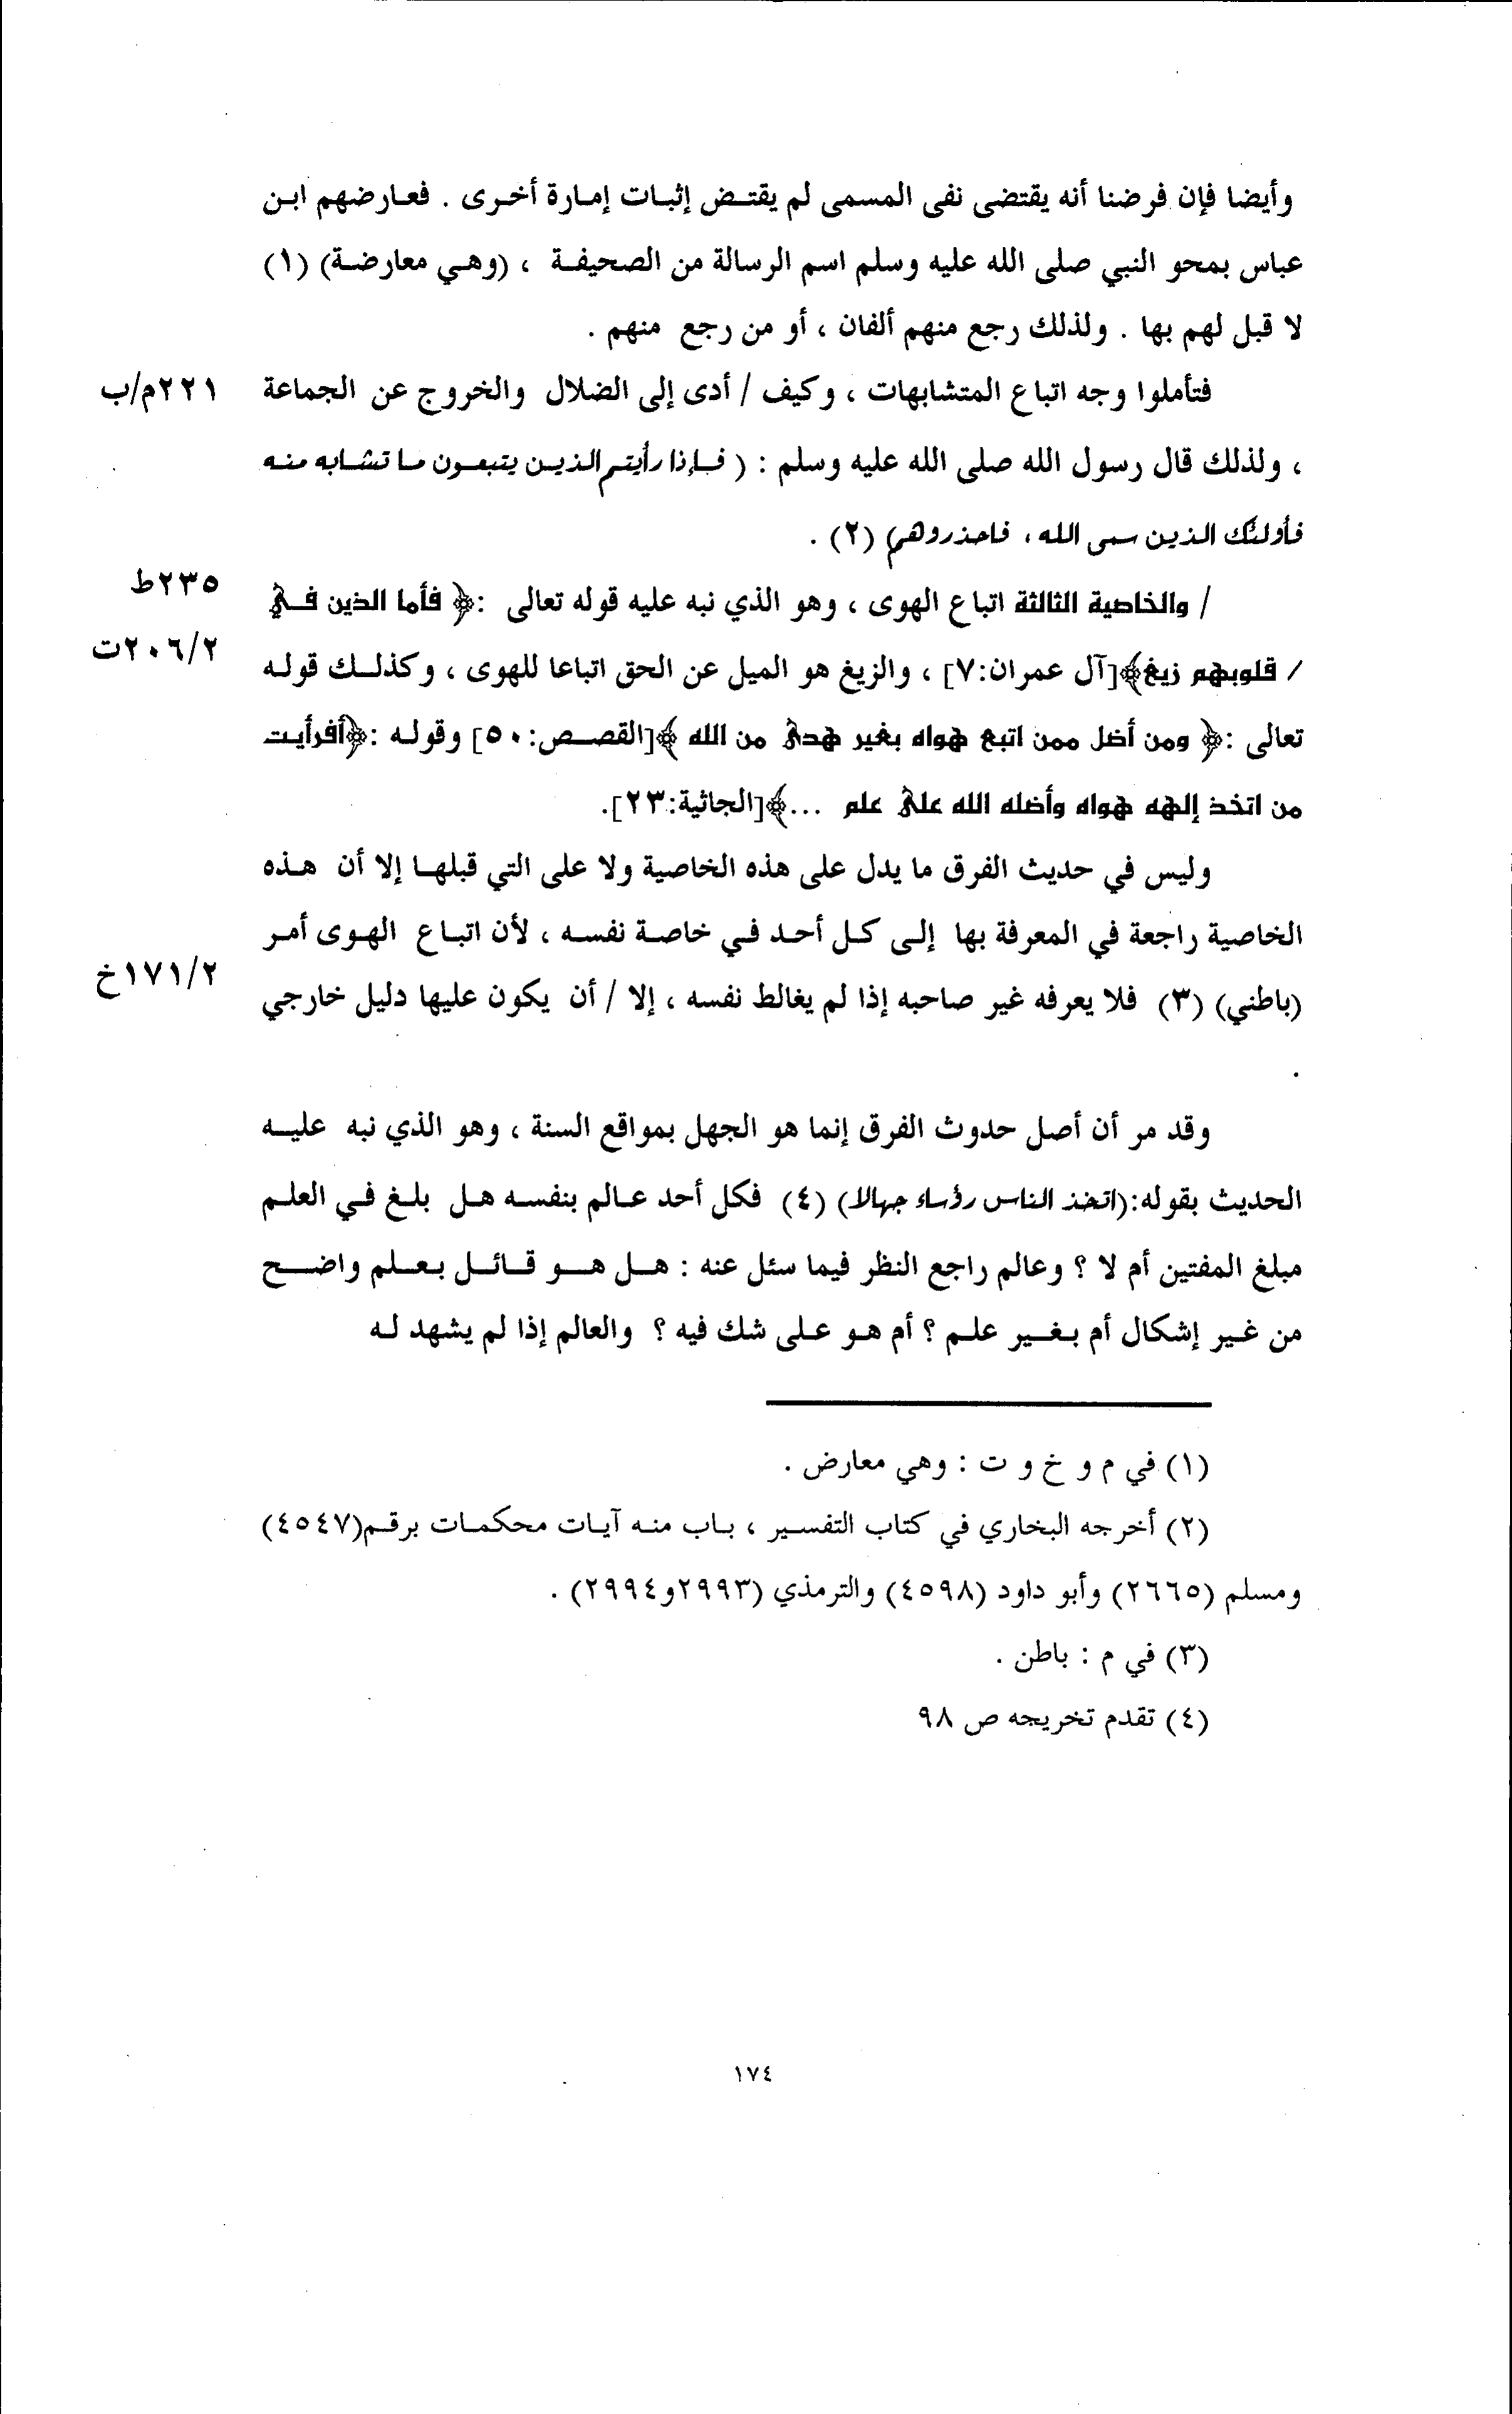 وأيضا فإن فرضنا أنه يقتضى نفى المسمى لم يقتض إثبات إمارة أخرى . فعارضهم ابن
عباس بمحو النبي صلى الله عليه وسلم اسم الرسالة من الصحيفة ، (وهي معارضة) (١)
لا قبل لهم بها . ولذلك رجع منهم ألفان ، أو من رجع منهم .
فتأملوا وجه اتباع المتشابهات ، وكيف / أدى إلى الضلال والخروج عن الجماعة
٢٢١م/ب
، ولذلك قال رسول الله صلى الله عليه وسلم : ( فإذا رأيتم الذين يتبعون ما تشابه منه
فأولئك الذين سمى الله ، فاحذروهم) (٢) .
/ والخاصية الثالثة اتباع الهوى ، وهو الذي نبه عليه قوله تعالى :﴿ فأما الذين في
٢٣٥ط
/ قلوبهم زيغ﴾[آل عمران:٧] ، والزيغ هو الميل عن الحق اتباعا للهوى ، وكذلك قوله
٢٠٦/٢ت
تعالى :﴿ ومن أضل ممن اتبع هواه بغير هدى من الله ﴾[القصص:٥٠] وقوله :﴿أفرأيت
من اتخذ إلهه هواه وأضله الله على علم ...﴾[الجاثية:٢٣].
وليس في حديث الفرق ما يدل على هذه الخاصية ولا على التي قبلها إلا أن هذه
الخاصية راجعة في المعرفة بها إلى كل أحد في خاصة نفسه ، لأن اتباع الهوى أمر
(باطني) (٣) فلا يعرفه غير صاحبه إذا لم يغالط نفسه ، إلا / أن يكون عليها دليل خارجي
١٧١/٢خ
.
وقد مر أن أصل حدوث الفرق إنما هو الجهل بمواقع السنة ، وهو الذي نبه عليه
الحديث بقوله:(اتخذ الناس رؤساء جهالا) (٤) فكل أحد عالم بنفسه هل بلغ في العلم
مبلغ المفتين أم لا ؟ وعالم راجع النظر فيما سئل عنه : هل هو قائل بعلم واضح
من غير إشكال أم بغير علم ؟ أم هو على شك فيه ؟ والعالم إذا لم يشهد له
(١) في م و خ و ت : وهي معارض .
(٢) أخرجه البخاري في كتاب التفسير ، باب منه آيات محكمات برقم(٤٥٤٧)
ومسلم (٢٦٦٥) وأبو داود (٤٥٩٨) والترمذي (٢٩٩٣و٢٩٩٤) .
(٣) في م : باطن .
(٤) تقدم تخريجه ص ٩٨
١٧٤